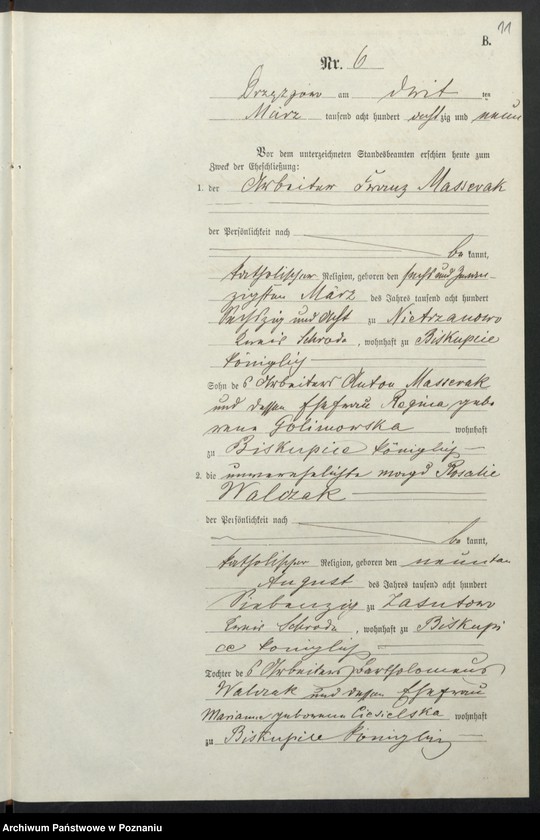 11
B.
Nr. 6
am dritten
März tausend acht hundert achtzig und neun
Vor dem unterzeichneten Standesbeamten erschien heute zum
Zweck der Eheschließung:
1. der Arbeiter Franz Masserak
der Persönlichkeit nach
bekannt,
katholischer Religion, geboren den sechsundzwan-
zigsten März des Jahres tausend acht hundert
Sechszig und Acht zu Nietrzanowo
Kreis Schroda, wohnhaft zu Biskupice
königlich
Sohn des Arbeiters Anton Masserak
und dessen Ehefrau Regina gebo
rene Golimowska wohnhaft
zu Biskupice königlich
2. die unverehelichte Magd Rosalie
Walczak
der Persönlichkeit nach
bekannt,
katholischer Religion, geboren den neunten
August des Jahres tausend acht hundert
Siebenzig zu Zasutowo
Kreis Schroda, wohnhaft zu Biskupi
ce königlich
Tochter des Arbeiters Bartholomeus
Walczak und dessen Ehefrau
Marianne geborene Ciesielska wohnhaft
zu Biskupice königlich
Archiwum Państwowe w Poznaniu